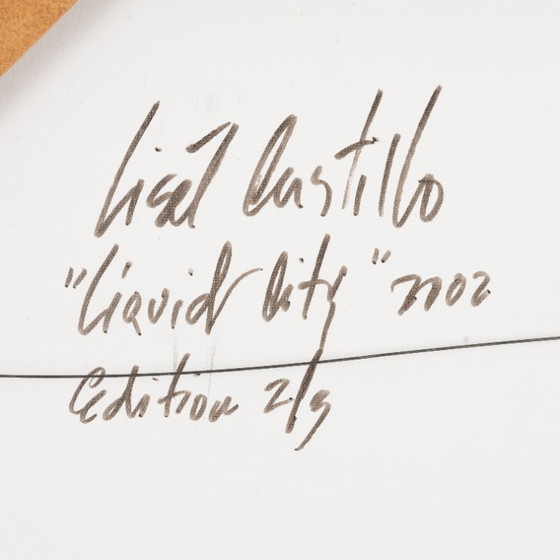 Lisət Castillo
"Liquid City" 2002
Edition 2/9